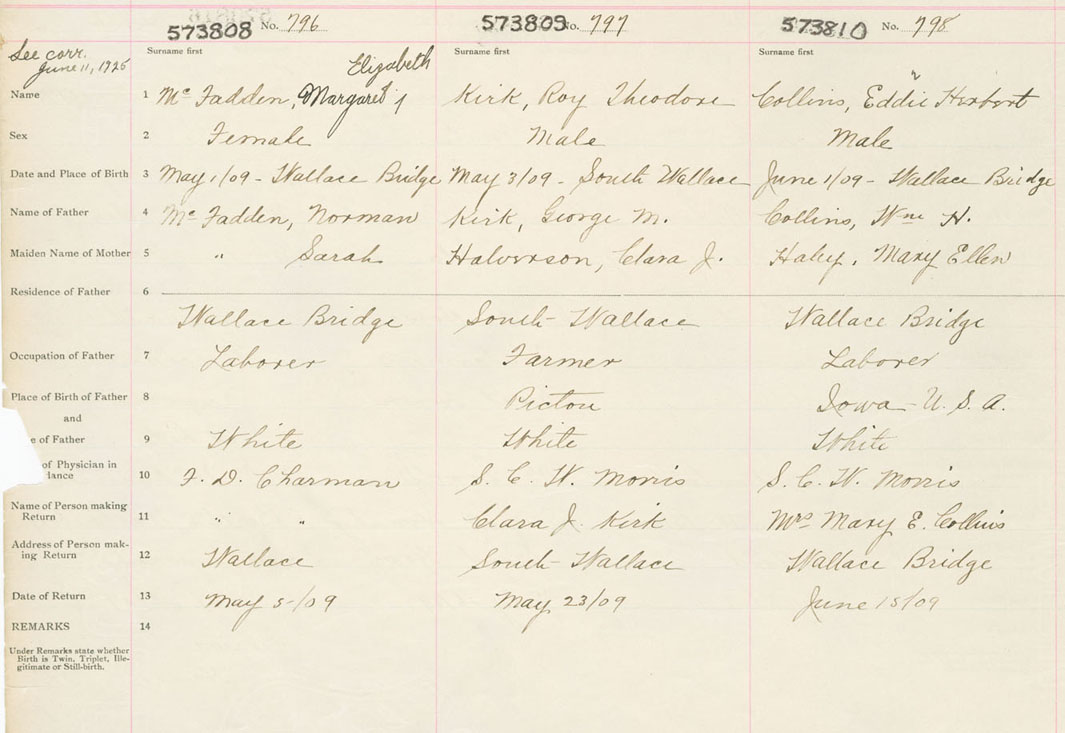 573808 No. 796 573809 No. 797 573810 No. 798
See corr. Surname first Surname first Surname first
June 11, 1925 Elizabeth
Name 1 Mc Fadden, Margaret Kirk, Roy Theodore Collins, Eddie Herbert
Sex 2 Female Male Male
Date and Place of Birth 3 May 1/09 - Wallace Bridge May 3/09 - South Wallace June 1/09 - Wallace Bridge
Name of Father 4 Mc Fadden, Norman Kirk, George M. Collins, Wm H.
Maiden Name of Mother 5 " Sarah Halverson, Clara J. Haley, Mary Ellen
Residence of Father 6
Wallace Bridge South Wallace Wallace Bridge
Occupation of Father 7 Laborer Farmer Laborer
Place of Birth of Father 8 Pictou Iowa U. S. A.
and
e of Father 9 White White White
of Physician in
dance 10 F. D. Charman S. C. W. Morris S. C. W. Morris
Name of Person making
Return 11 " " Clara J. Kirk Mrs Mary E. Collins
Address of Person mak-
ing Return 12 Wallace South Wallace Wallace Bridge
Date of Return 13 May 5/09 May 23/09 June 15/09
REMARKS 14
Under Remarks state whether
Birth is Twin, Triplet, Ille-
gitimate or Still-birth.